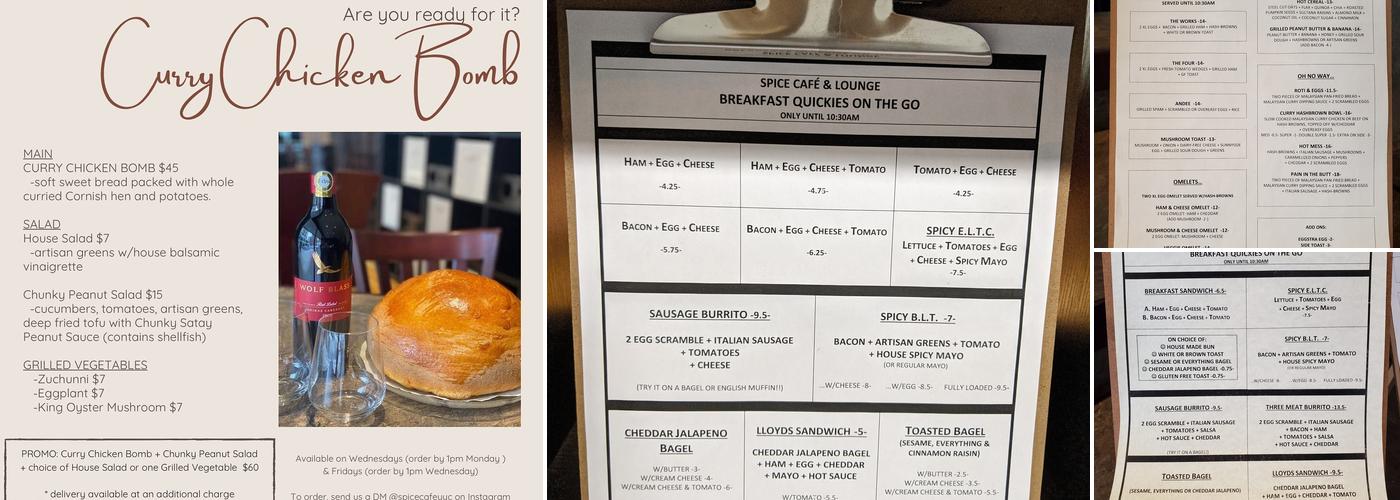 Are you ready for it?
Curry Chicken Bomb
MAIN
CURRY CHICKEN BOMB $45
-soft sweet bread packed with whole
curried Cornish hen and potatoes.
SALAD
House Salad $7
-artisan greens w/house balsamic
vinaigrette
Chunky Peanut Salad $15
-cucumbers, tomatoes, artisan greens,
deep fried tofu with Chunky Satay
Peanut Sauce (contains shellfish)
GRILLED VEGETABLES
-Zuchunni $7
-Eggplant $7
-King Oyster Mushroom $7
PROMO: Curry Chicken Bomb + Chunky Peanut Salad
+ choice of House Salad or one Grilled Vegetable $60
* delivery available at an additional charge
WOLF BLASS
Available on Wednesdays (order by 1pm Monday )
& Fridays (order by 1pm Wednesday)
To order, send us a DM @spicecafeyyc on Instagram
SPICE CAFÉ & LOUNGE
BREAKFAST QUICKIES ON THE GO
ONLY UNTIL 10:30AM
HAM + EGG + CHEESE
-4.25-
HAM + EGG + CHEESE + TOMATO
-4.75-
TOMATO + EGG + CHEESE
-4.25-
BACON + EGG + CHEESE
-5.75-
BACON + EGG + CHEESE + TOMATO
-6.25-
SPICY E.L.T.C.
LETTUCE + TOMATOES + EGG
+ CHEESE + SPICY MAYO
-7.5-
SAUSAGE BURRITO -9.5-
2 EGG SCRAMBLE + ITALIAN SAUSAGE
+ TOMATOES
+ CHEESE
(TRY IT ON A BAGEL OR ENGLISH MUFFIN!!)
SPICY B.L.T. -7-
BACON + ARTISAN GREENS + TOMATO
+ HOUSE SPICY MAYO
(OR REGULAR MAYO)
...W/CHEESE -8- ...W/EGG -8.5- FULLY LOADED -9.5-
CHEDDAR JALAPENO
BAGEL
W/BUTTER -3-
W/CREAM CHEESE -4-
W/CREAM CHEESE & TOMATO -6-
LLOYDS SANDWICH -5-
CHEDDAR JALAPENO BAGEL
+ HAM + EGG + CHEDDAR
+ MAYO + HOT SAUCE
W/TOMATO -5.5-
TOASTED BAGEL
(SESAME, EVERYTHING &
CINNAMON RAISIN)
W/BUTTER -2.5-
W/CREAM CHEESE -3.5-
W/CREAM CHEESE & TOMATO -5.5-
SERVED UNTIL 10:30AM
THE WORKS -14-
2 XL EGGS + BACON + GRILLED HAM + HASH-BROWNS
+ WHITE OR BROWN TOAST
THE FOUR -14-
2 XL EGGS + FRESH TOMATO WEDGES + GRILLED HAM
+ GF TOAST
ANDEE -14-
GRILLED SPAM + SCRAMBLED OR OVEREASY EGGS + RICE
MUSHROOM TOAST -13-
MUSHROOM + ONION + DAIRY-FREE CHEESE + SUNNYSIDE
EGG + GRILLED SOUR DOUGH + GREENS
OMELETS...
TWO XL EGG OMELET SERVED W/HASH-BROWNS
HAM & CHEESE OMELET -12-
2 EGG OMELET: HAM + CHEDDAR
(ADD MUSHROOM -2-)
MUSHROOM & CHEESE OMELET -12-
2 EGG OMELET: MUSHROOM + CHEESE
HOT CEREAL -13-
STEEL CUT OATS + FLAX + QUINOA + CHIA + ROASTED
PUMPKIN SEEDS + SULTANA RAISINS + ALMOND MILK +
COCONUT OIL + COCONUT SUGAR + CINNAMON
GRILLED PEANUT BUTTER & BANANA -14-
PEANUT BUTTER + BANANA + HONEY + GRILLED SOUR
DOUGH + HASHBROWNS OR ARTISAN GREENS
(ADD BACON -4-)
OH NO WAY...
ROTI & EGGS -11.5-
TWO PIECES OF MALAYSIAN PAN FRIED BREAD +
MALAYSIAN CURRY DIPPING SAUCE + 2 SCRAMBLED EGGS
CURRY HASHBROWN BOWL -16-
SLOW COOKED MALAYSIAN CURRY CHICKEN OR BEEF ON
HASH-BROWNS, TOPPED OFF W/CHEDDAR
+ OVEREASY EGGS
HOT MESS -16-
HASH-BROWNS + ITALIAN SAUSAGE + MUSHROOMS +
CARAMELIZED ONIONS + PEPPERS
+ CHEDDAR + 2 EGGS
PAIN IN THE BUTT -18-
TWO PIECES OF MALAYSIAN PAN FRIED BREAD +
MALAYSIAN CURRY DIPPING SAUCE + 2 SCRAMBLED EGGS
+ ITALIAN SAUSAGE + HASH-BROWNS
ADD ONS:
EGGSTRA EGG -2-
SIDE TOAST -3-
BREAKFAST QUICKIES ON THE GO
ONLY UNTIL 10:30AM
BREAKFAST SANDWICH -6.5-
A. HAM + EGG + CHEESE + TOMATO
B. BACON + EGG + CHEESE + TOMATO
SPICY E.L.T.C.
LETTUCE + TOMATOES + EGG
+ CHEESE + SPICY MAYO
-7.5-
ON CHOICE OF:
HOUSE MADE BUN
WHITE OR BROWN TOAST
SESAME OR EVERYTHING BAGEL
CHEDDAR JALAPENO BAGEL -0.75-
GLUTEN FREE TOAST -0.75-
SPICY B.L.T. -7-
BACON + ARTISAN GREENS + TOMATO
+ HOUSE SPICY MAYO
(OR REGULAR MAYO)
...W/CHEESE -8- ...W/EGG -8.5- FULLY LOADED -9.5-
SAUSAGE BURRITO -9.5-
2 EGG SCRAMBLE + ITALIAN SAUSAGE
+ TOMATOES + SALSA
+ HOT SAUCE + CHEDDAR
(TRY IT ON A BAGEL!)
THREE MEAT BURRITO -13.5-
2 EGG SCRAMBLE + ITALIAN SAUSAGE
+ BACON + HAM
+ TOMATOES + SALSA
+ HOT SAUCE + CHEDDAR
TOASTED BAGEL
(SESAME, EVERYTHING OR CHEDDAR JALAPENO)
LLOYDS SANDWICH -9.5-
CHEDDAR JALAPENO BAGEL
+ HAM + EGG + CHEDDAR